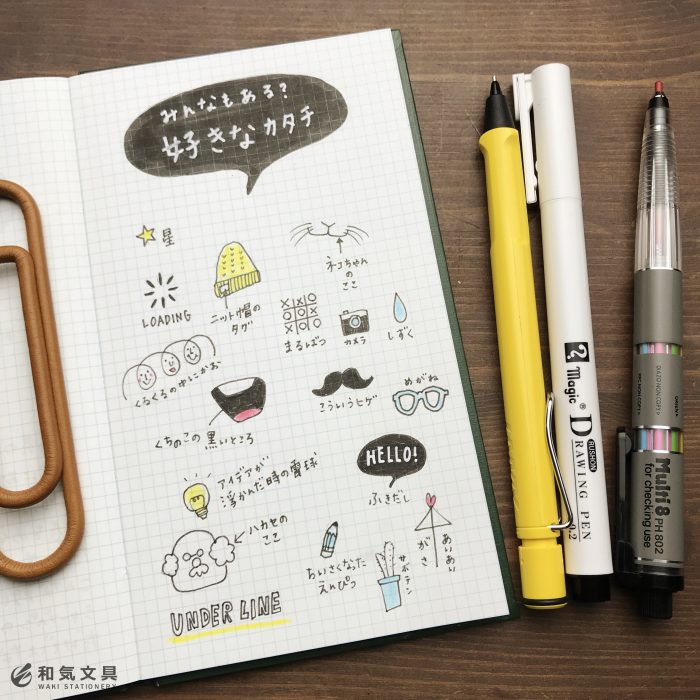 みんなもある?
好きなカタチ
星
ネコちゃん
の
ここ
LOADING
ニット帽の
タグ
まるばつ
カメラ
しずく
くるくるの中にかお
くちのこの黒いところ
こういうヒゲ
めがね
HELLO!
ふきだし
アイデアが
浮かんだ時の電球
ハカセの
ここ
ちいさくなった
えんぴつ
サボテン
あいあい
がさ
UNDER LINE
Magic®
DRAWING PEN
RUSHON
0.2
Multi8
PH 802
for checking use
和気文具
WAKI STATIONERY